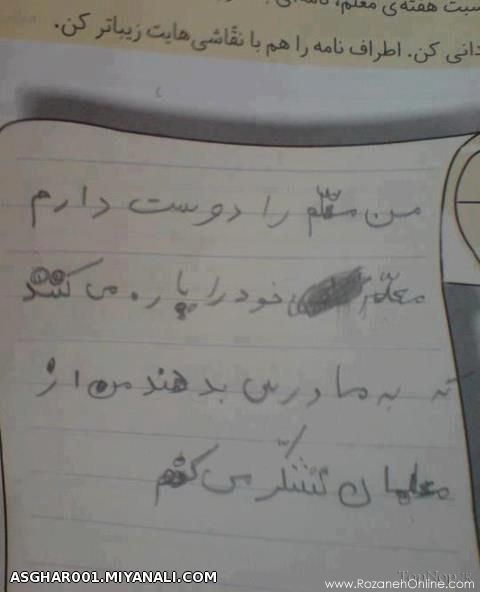 سبت هفته‌ی معلم، نامه‌ای
دانی کن. اطراف نامه را هم با نقّاشی‌هایت زیباتر کن.
من معلّم را دوست دارم
معلّم خود را پاره می کنند
که به ما درس بدهند من از
معلمان تشکّر می کنم
ASGHAR001.MIYANALI.COM
www.RozanehOnline.com